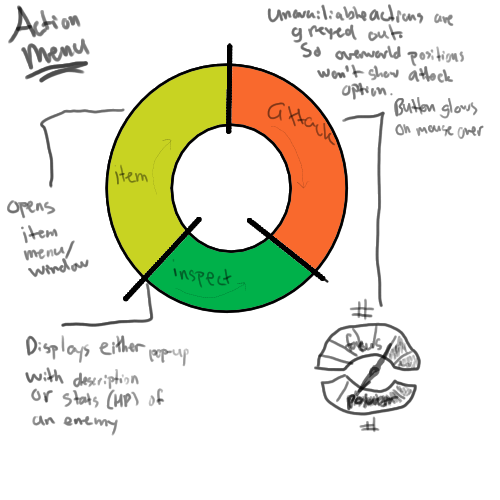 Action
Menu
Unavailiable actions are
greyed out.
So overworld positions
won't show attack
option.
Button glows
on mouse over
Attack
item
inspect
Opens
item
menu/
window
Displays either pop-up
with description
or stats (HP) of
an enemy
#
focus
#